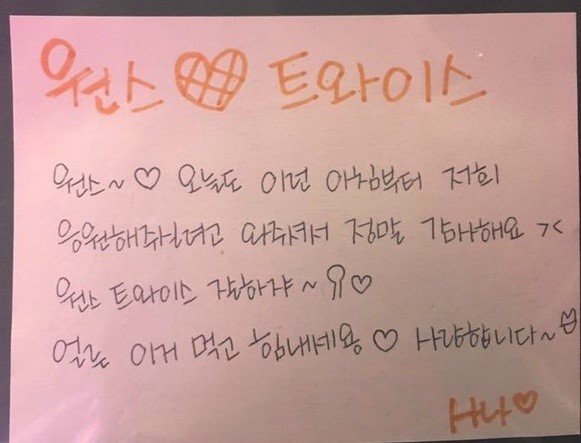 원스 ♡ 트와이스
원스~ ♡ 오늘도 이런 아침부터 저희
응원해주실려고 와주셔서 정말 감사해요 ><
원스 트와이스 ~ ♡
얼른 이거 먹고 힘내세용 ♡ 사랑합니다~